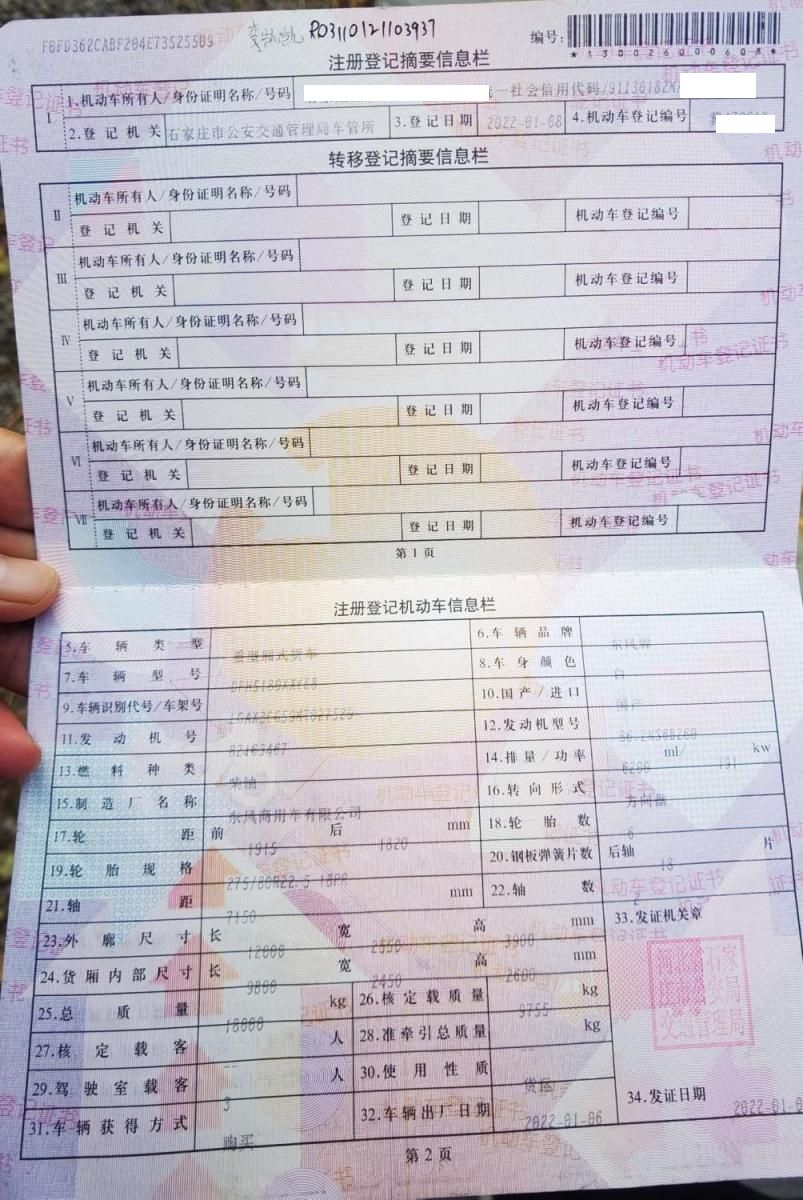 F6FD362CABF204E73525509 李凯凯 R03110121103937 编号:
*130026000608*
注册登记摘要信息栏
I 1.机动车所有人/身份证明名称/号码 统一社会信用代码/91130182M
2.登记机关 石家庄市公安交通管理局车管所 3.登记日期 2022-01-08 4.机动车登记编号
转移登记摘要信息栏
II 机动车所有人/身份证明名称/号码
登记机关 登记日期 机动车登记编号
III 机动车所有人/身份证明名称/号码
登记机关 登记日期 机动车登记编号
IV 机动车所有人/身份证明名称/号码
登记机关 登记日期 机动车登记编号
V 机动车所有人/身份证明名称/号码
登记机关 登记日期 机动车登记编号
VI 机动车所有人/身份证明名称/号码
登记机关 登记日期 机动车登记编号
VII 机动车所有人/身份证明名称/号码
登记机关 登记日期 机动车登记编号
第1页
注册登记机动车信息栏
5.车辆类型 重型厢式货车 6.车辆品牌 东风牌
7.车辆型号 8.车身颜色 白
9.车辆识别代号/车架号 10.国产/进口 国产
11.发动机号 82163467 12.发动机型号
13.燃料种类 柴油 14.排量/功率 6200 ml/ kw
15.制造厂名称 东风商用车有限公司 16.转向形式 方向盘
17.轮距 前 1915 后 1820 mm 18.轮胎数 6
19.轮胎规格 275/80R22.5 18PR 20.钢板弹簧片数 后轴 片
21.轴距 7150 mm 22.轴数 2
23.外廓尺寸 长 12000 宽 2550 高 3900 mm 33.发证机关章
24.货厢内部尺寸 长 9800 宽 2450 高 2600 mm
25.总质量 18000 kg 26.核定载质量 9755 kg
27.核定载客 -- 人 28.准牵引总质量 -- kg
29.驾驶室载客 3 人 30.使用性质 货运
31.车辆获得方式 购买 32.车辆出厂日期 2022-01-06 34.发证日期 2022-01-0
第2页